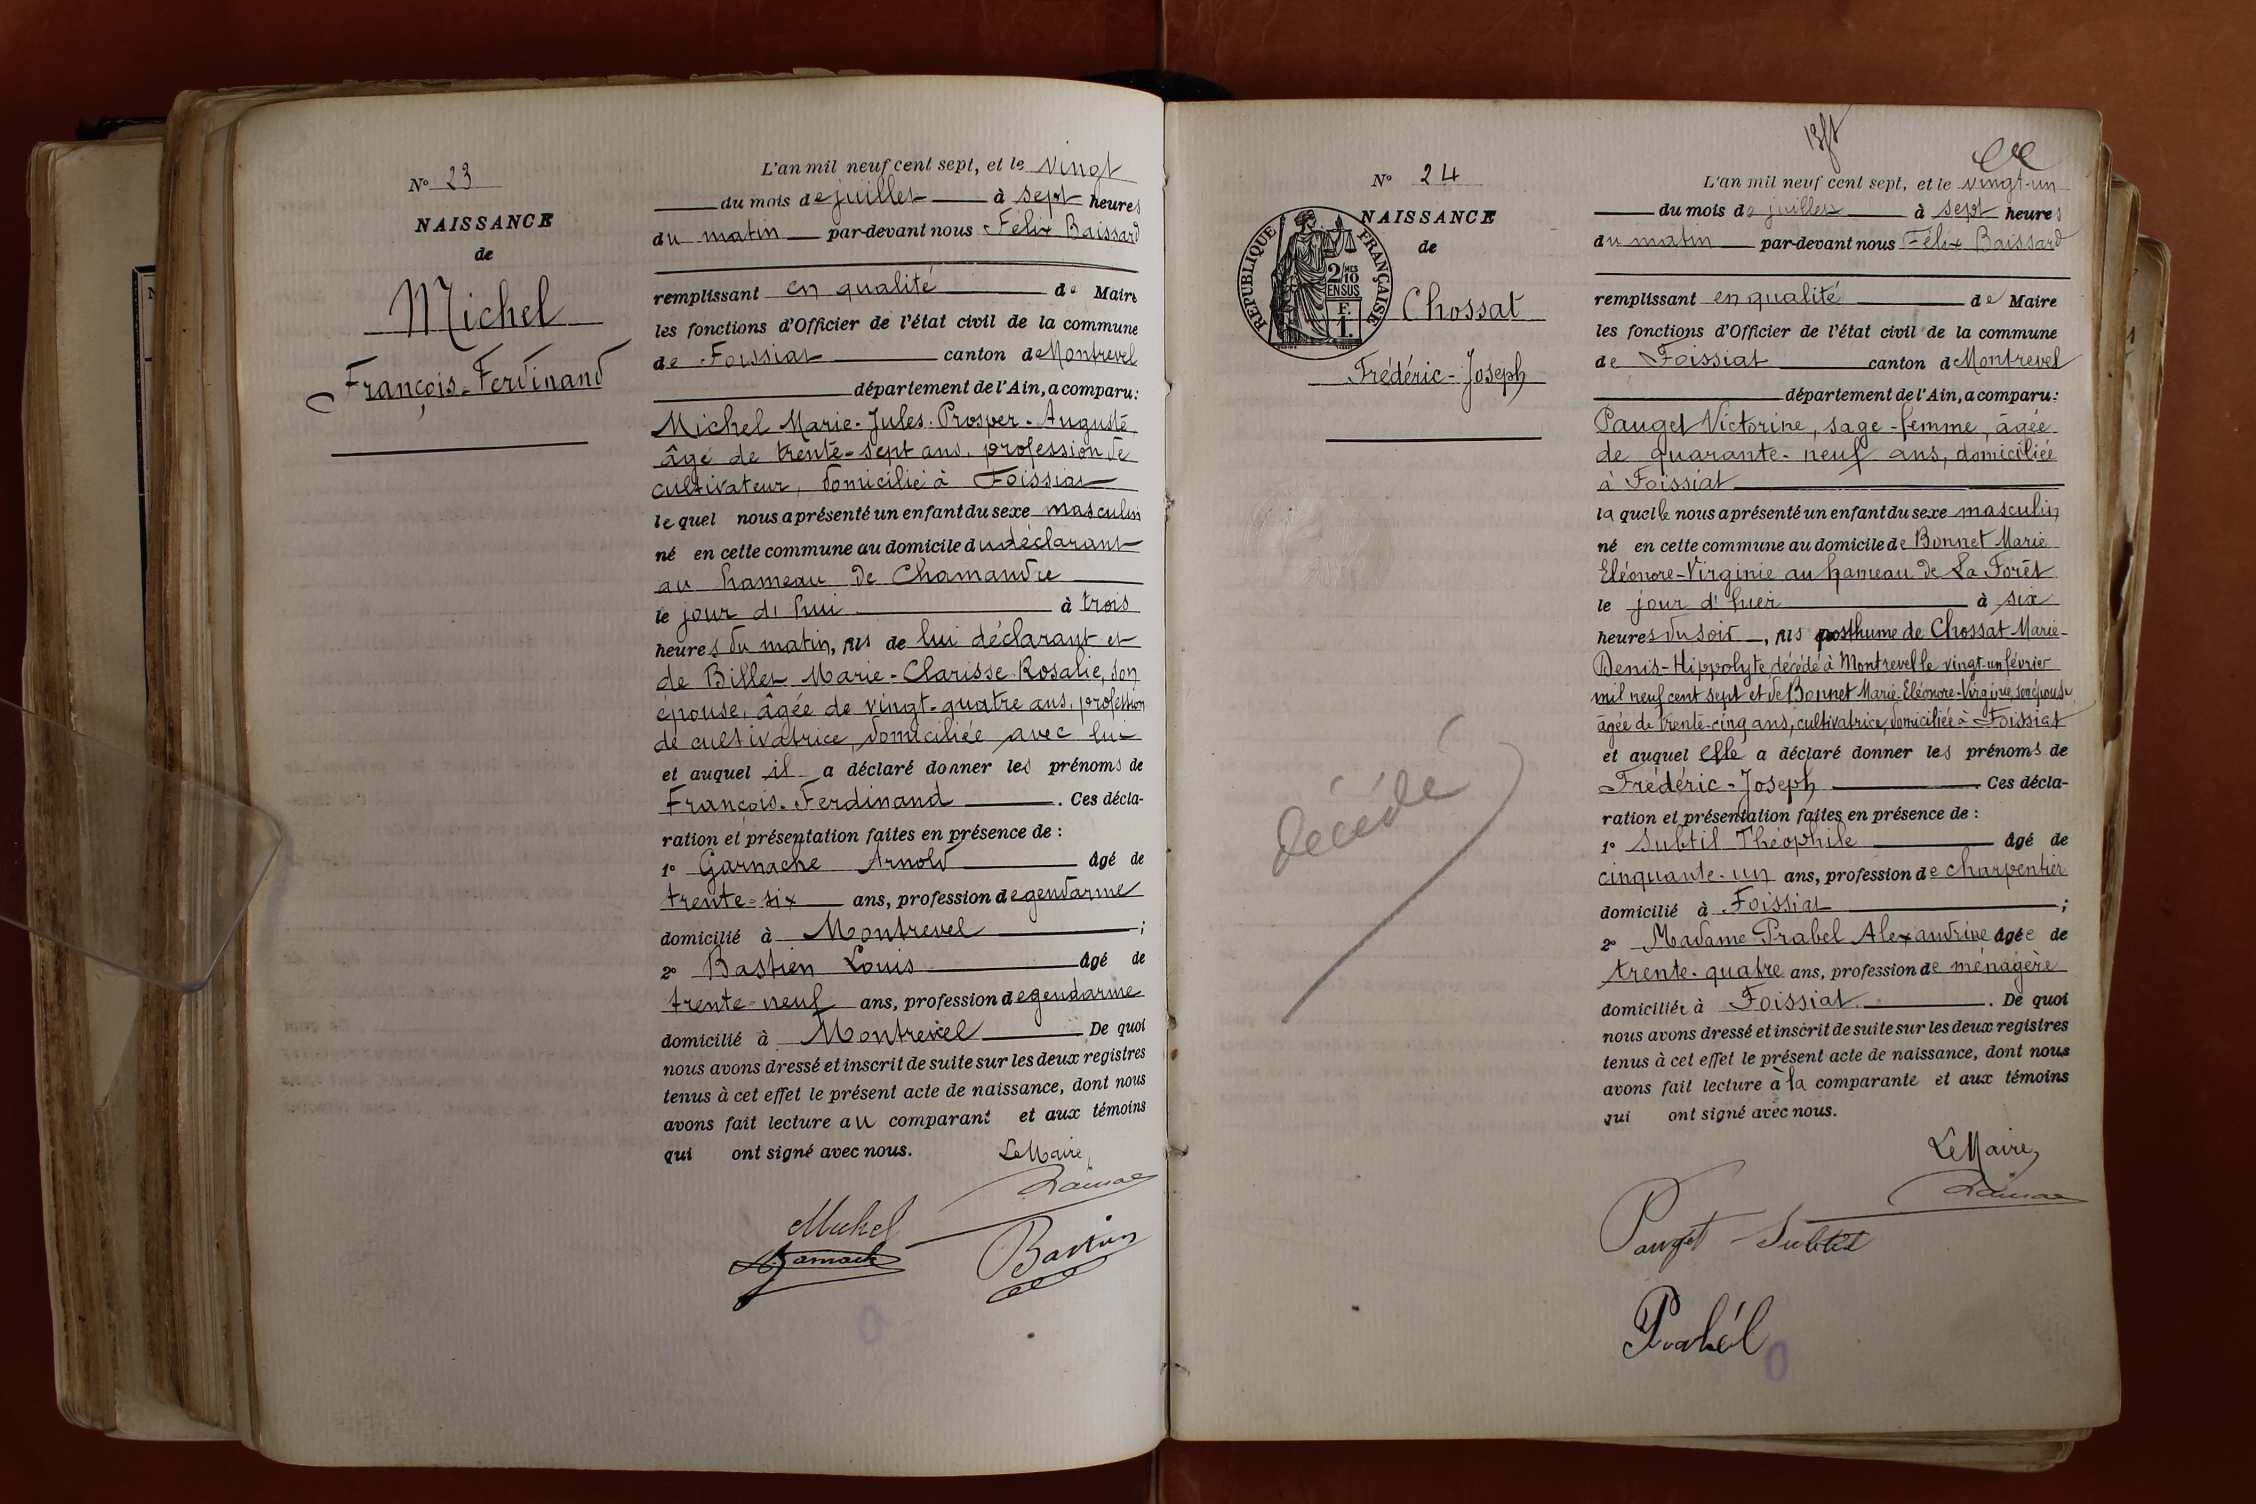 N° 23
NAISSANCE
de
Michel
François-Ferdinand
L'an mil neuf cent sept, et le vingt
du mois de juillet à sept heures
du matin par-devant nous Félix Baissard
remplissant en qualité de Maire
les fonctions d'Officier de l'état civil de la commune
de Foissiat canton de Montrevel
département de l'Ain, a comparu:
Michel Marie-Jules-Prosper-Auguste
âgé de trente-sept ans, profession de
cultivateur, domicilié à Foissiat
lequel nous a présenté un enfant du sexe masculin
né en cette commune au domicile du déclarant
au hameau de Chamandre
le jour d'hui à trois
heures du matin, fils de lui déclarant et
de Billet Marie-Clarisse-Rosalie, son
épouse, âgée de vingt-quatre ans, profession
de cultivatrice, domiciliée avec lui
et auquel il a déclaré donner les prénoms de
François-Ferdinand. Ces décla-
ration et présentation faites en présence de :
1° Garnache Arnold âgé de
trente-six ans, profession de gendarme
domicilié à Montrevel ;
2° Bastien Louis âgé de
trente-neuf ans, profession de gendarme
domicilié à Montrevel De quoi
nous avons dressé et inscrit de suite sur les deux registres
tenus à cet effet le présent acte de naissance, dont nous
avons fait lecture au comparant et aux témoins
qui ont signé avec nous.
Le Maire,
Michel
Garnache
Bastien
N° 24
NAISSANCE
de
RÉPUBLIQUE FRANÇAISE
2/10 MES
EN SUS
F.
1.
Chossat
Frédéric-Joseph
décédé
L'an mil neuf cent sept, et le vingt-un
du mois de juillet à sept heures
du matin par-devant nous Félix Baissard
remplissant en qualité de Maire
les fonctions d'Officier de l'état civil de la commune
de Foissiat canton de Montrevel
département de l'Ain, a comparu:
Pauget Victorine, sage-femme, âgée
de quarante-neuf ans, domiciliée
à Foissiat
laquelle nous a présenté un enfant du sexe masculin
né en cette commune au domicile de Bonnet Marie
Eléonore-Virginie au hameau de La Forêt
le jour d'hier à six
heures du soir, fils posthume de Chossat Marie-
Denis-Hippolyte décédé à Montrevel le vingt-un février
mil neuf cent sept et de Bonnet Marie-Eléonore-Virginie, son épouse
âgée de trente-cinq ans, cultivatrice, domiciliée à Foissiat
et auquel elle a déclaré donner les prénoms de
Frédéric-Joseph. Ces décla-
ration et présentation faites en présence de :
1° Subtil Théophile âgé de
cinquante-un ans, profession de charpentier
domicilié à Foissiat ;
2° Madame Prabel Alexandrine âgée de
trente-quatre ans, profession de ménagère
domiciliée à Foissiat. De quoi
nous avons dressé et inscrit de suite sur les deux registres
tenus à cet effet le présent acte de naissance, dont nous
avons fait lecture à la comparante et aux témoins
qui ont signé avec nous.
Le Maire,
Pauget Subtil
Prabél